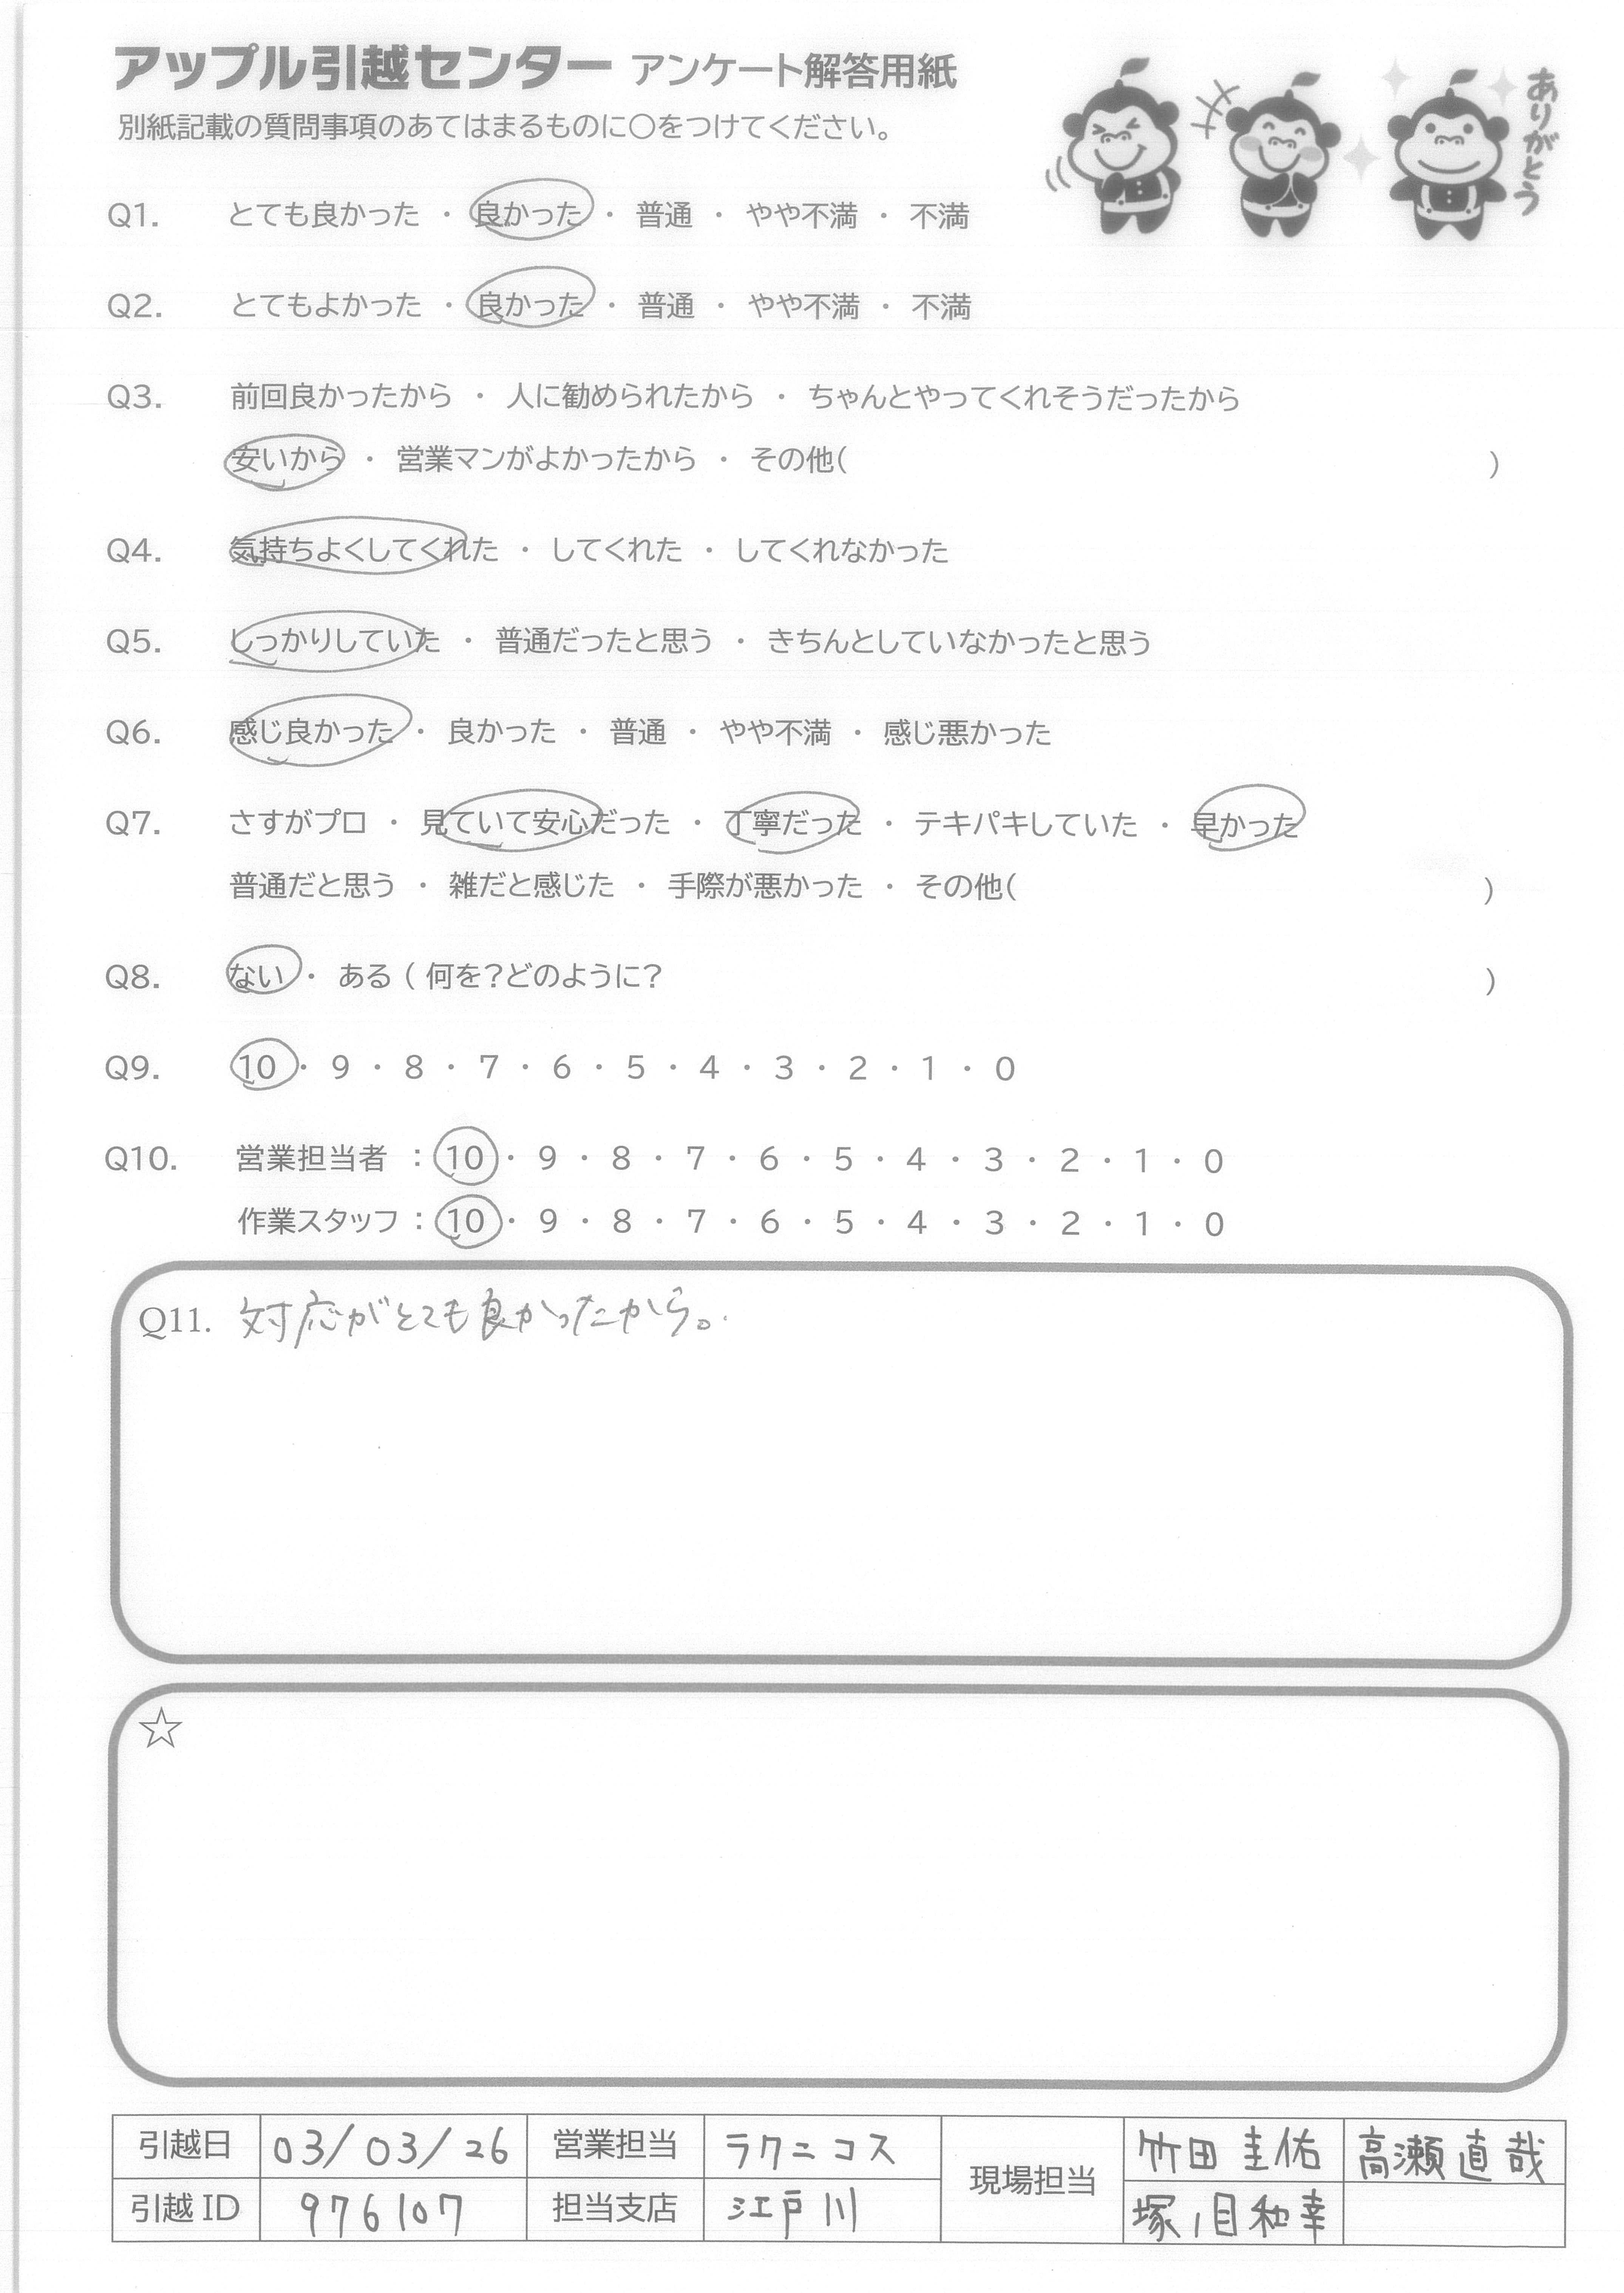 アップル引越センター アンケート解答用紙
別紙記載の質問事項のあてはまるものに○をつけてください。
ありがとう
Q1. とても良かった ・ 良かった ・ 普通 ・ やや不満 ・ 不満
Q2. とてもよかった ・ 良かった ・ 普通 ・ やや不満 ・ 不満
Q3. 前回良かったから ・ 人に勧められたから ・ ちゃんとやってくれそうだったから
安いから ・ 営業マンがよかったから ・ その他( )
Q4. 気持ちよくしてくれた ・ してくれた ・ してくれなかった
Q5. しっかりしていた ・ 普通だったと思う ・ きちんとしていなかったと思う
Q6. 感じ良かった ・ 良かった ・ 普通 ・ やや不満 ・ 感じ悪かった
Q7. さすがプロ ・ 見ていて安心だった ・ 丁寧だった ・ テキパキしていた ・ 早かった
普通だと思う ・ 雑だと感じた ・ 手際が悪かった ・ その他( )
Q8. ない ・ ある ( 何を?どのように? )
Q9. 10 ・ 9 ・ 8 ・ 7 ・ 6 ・ 5 ・ 4 ・ 3 ・ 2 ・ 1 ・ 0
Q10. 営業担当者 : 10 ・ 9 ・ 8 ・ 7 ・ 6 ・ 5 ・ 4 ・ 3 ・ 2 ・ 1 ・ 0
作業スタッフ : 10 ・ 9 ・ 8 ・ 7 ・ 6 ・ 5 ・ 4 ・ 3 ・ 2 ・ 1 ・ 0
Q11. 対応がとても良かったから。
☆
引越日 03/03/26 営業担当 ラクニコス 現場担当 竹田 圭佑 高瀬 直哉
引越ID 976107 担当支店 江戸川 塚ノ目和幸